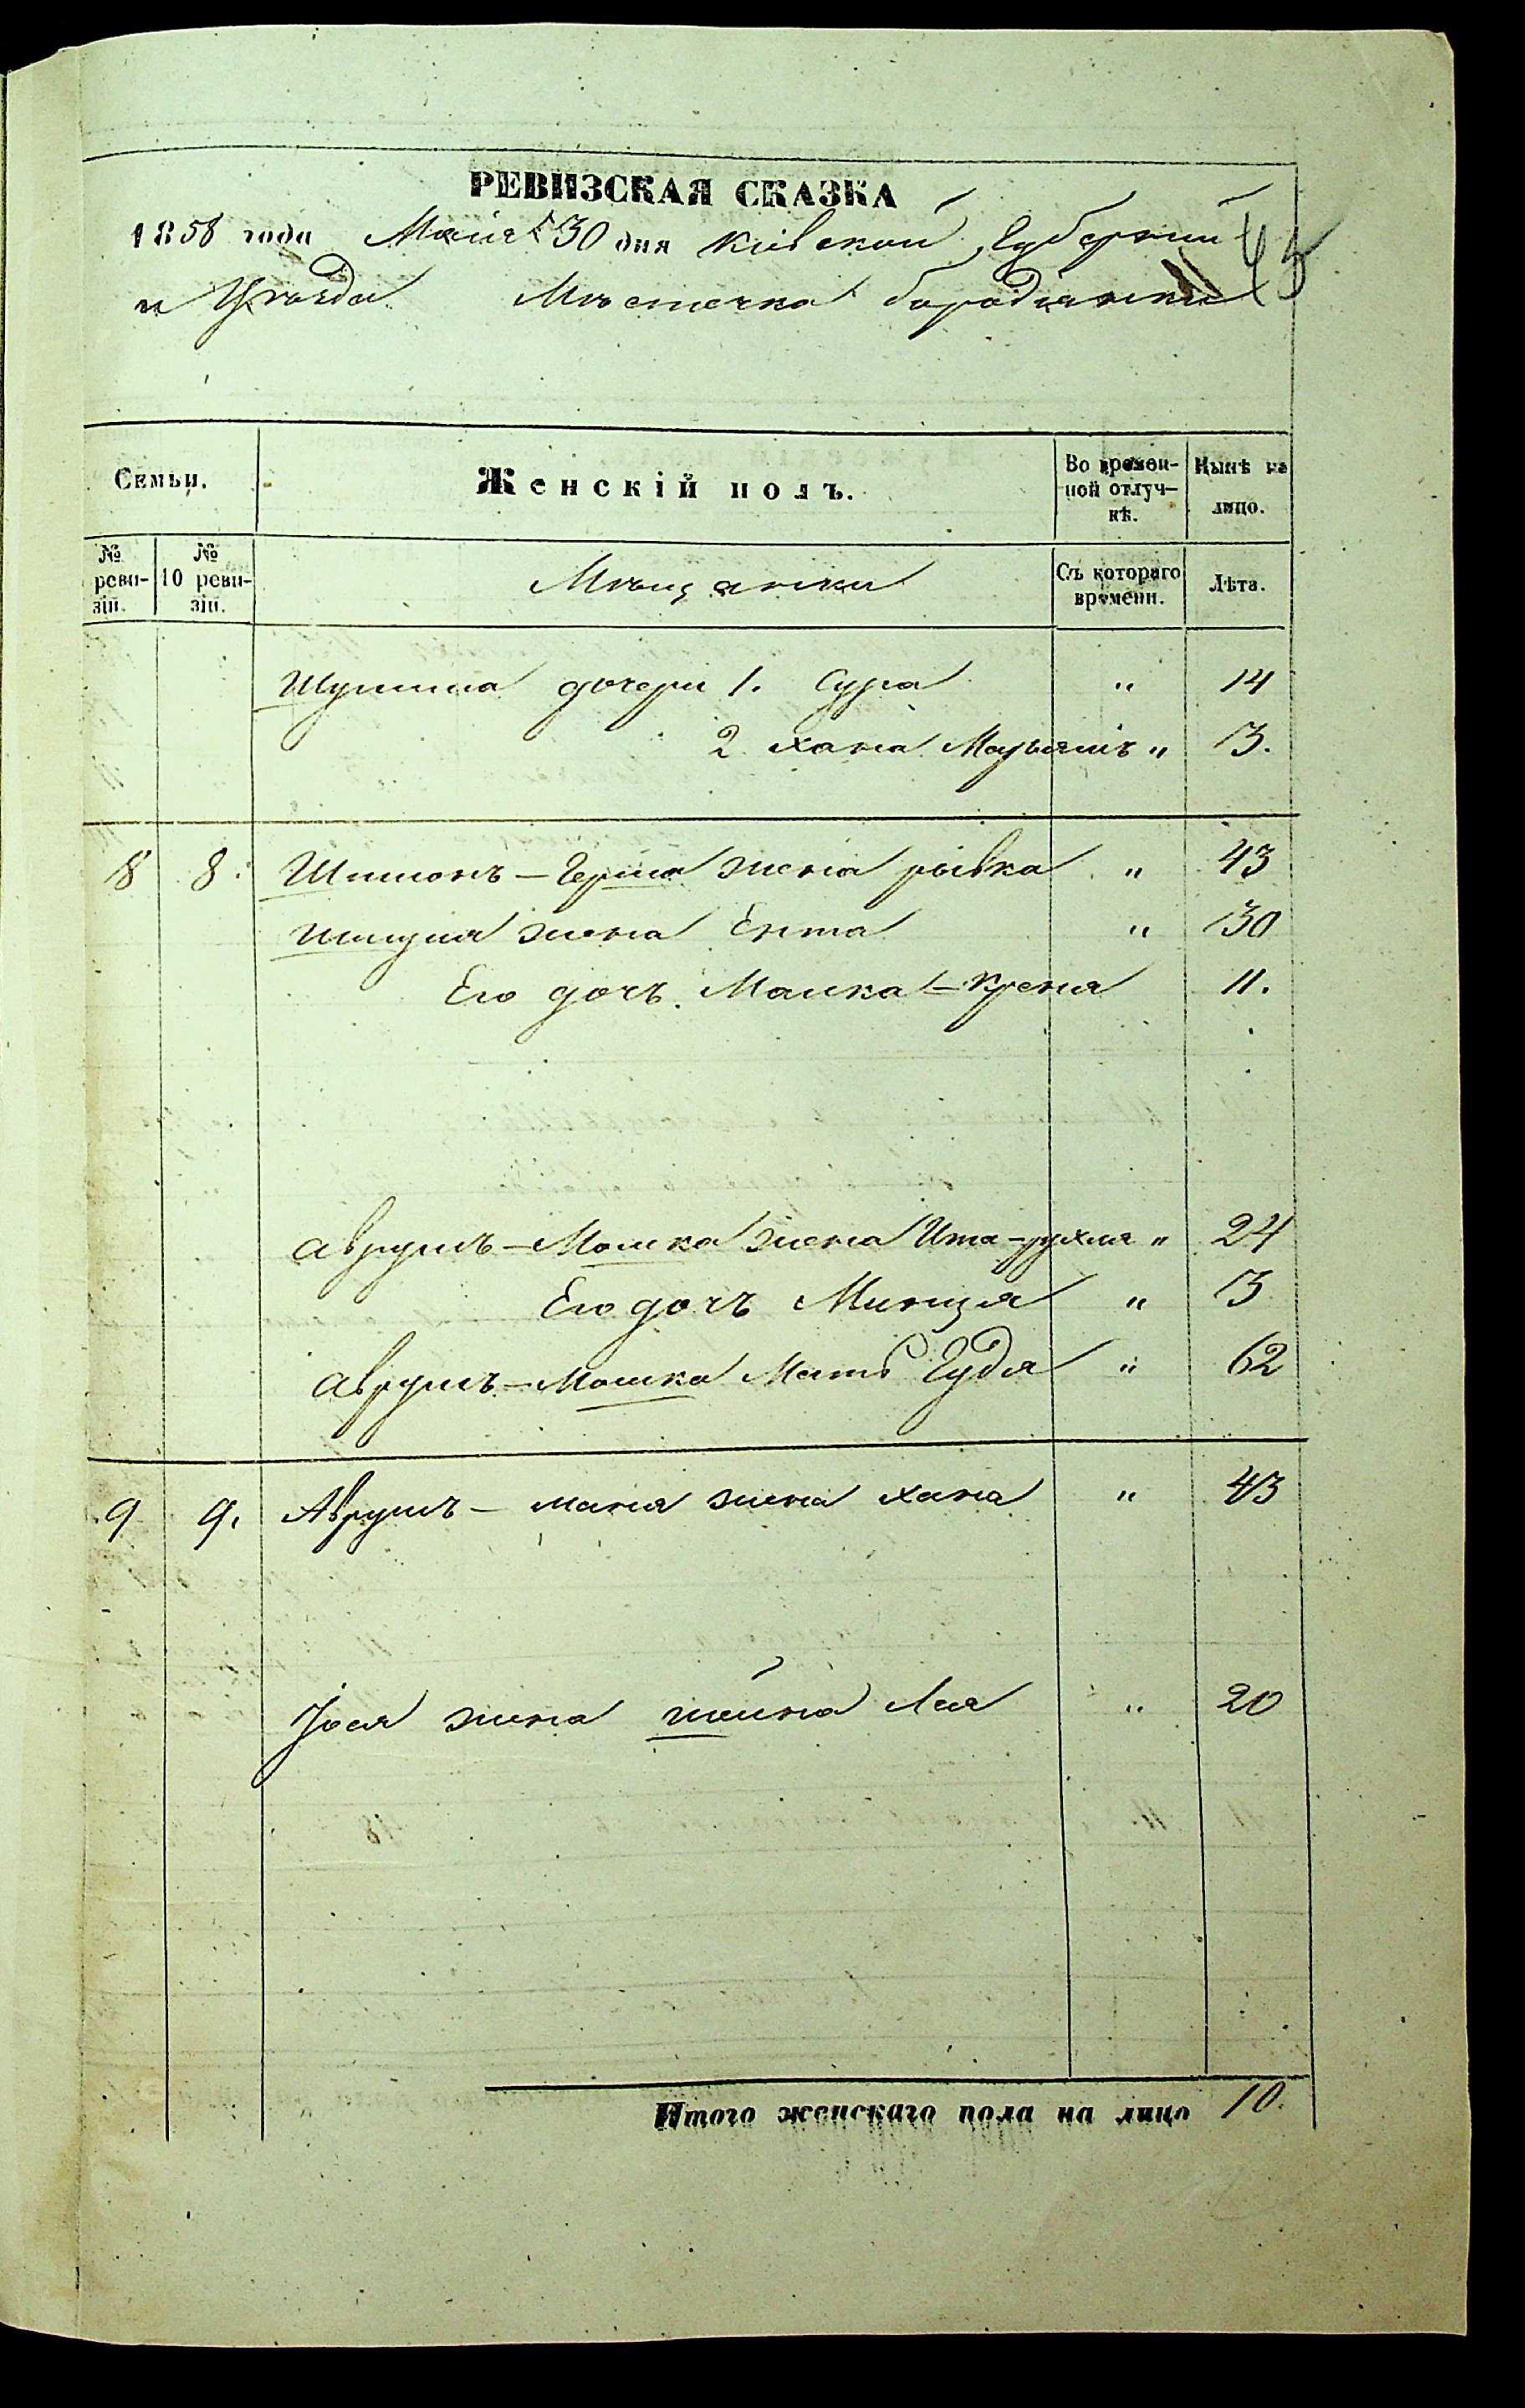 РЕВИЗСКАЯ СКАЗКА
1858 года Маія 30 дня Кіевской Губерніи
и Уѣзда Мѣстечка бородянки
Семьи. Женскій полъ. Во времен-ной отлуч-кѣ. Нынѣ на лицо.
№ реви-зіи. № 10 реви-зіи. Мѣщанки Съ котораго времени. Лѣта.
дочери 1. Сура " 14
2 хана Марьямъ " 3.
8 8. Шимонъ-Герша жена ривка " 43
шмуля жена Ента " 30
Его дочь Малка-Креня 11.
аврумъ-Мошка жена Ита-рухля " 24
Его дочь Минця " 3
аврумъ-Мошка Мать Гудя " 62
9 9. Аврумъ-маня жена хана " 43
Іося жена шейна Лея " 20
Итого женскаго пола на лицо 10.